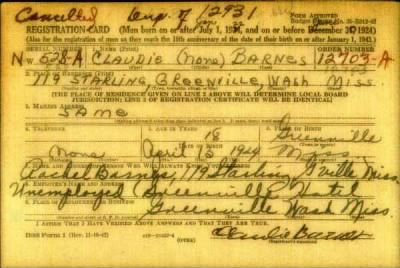 Cancelled Dup. of 12931
REGISTRATION CARD (Men born on or after July 1, 1924 and on or before December 31, 1924)
(Also for the registration of men as they reach the 18th anniversary of the date of their birth on or after January 1, 1943.)
SERIAL NUMBER 1. NAME (Print) ORDER NUMBER
N W 628-A CLAUDIE (NONE) BARNES 12703-A
2. PLACE OF RESIDENCE (Print)
119 STARLING, GREENVILLE, WASH MISS
(THE PLACE OF RESIDENCE GIVEN ON LINE 2 ABOVE WILL DETERMINE LOCAL BOARD
JURISDICTION; LINE 2 OF REGISTRATION CERTIFICATE WILL BE IDENTICAL)
3. MAILING ADDRESS
SAME
4. TELEPHONE 5. AGE IN YEARS 6. PLACE OF BIRTH
18 Greenville
DATE OF BIRTH
None April 1924 Miss
Rachel Barnes, 119 Starling G'ville, Miss.
8. EMPLOYER'S NAME AND ADDRESS
Unemployed (Greenville Hotel
9. PLACE OF EMPLOYMENT OR BUSINESS
Greenville Wash Miss.
I AFFIRM THAT I HAVE VERIFIED ABOVE ANSWERS AND THAT THEY ARE TRUE.
DSS Form 1 (OVER) Claudie Barnes